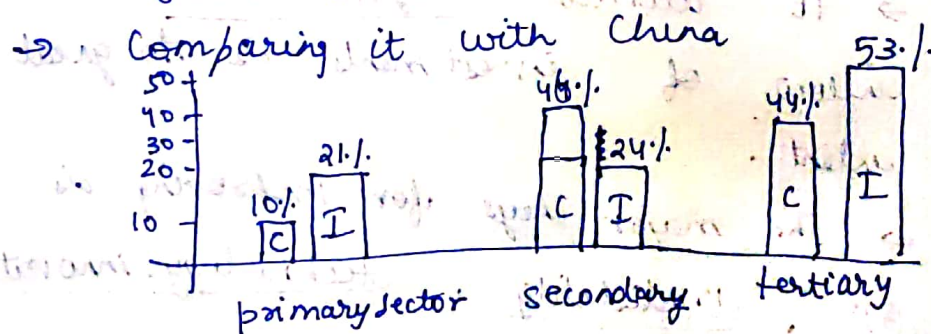 → Comparing it with China
50
40
30
20
10
10%
C
21%
I
46%
C
24%
I
44%
C
53%
I
primary sector secondary. tertiary